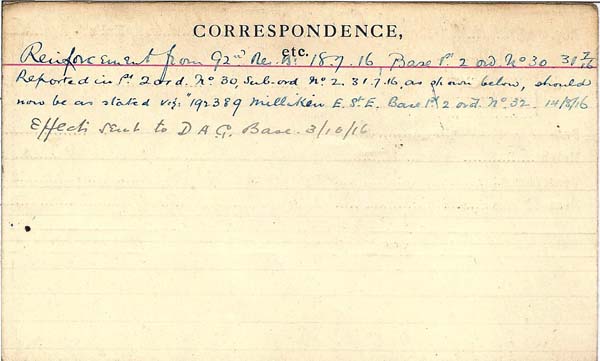 CORRESPONDENCE,
etc.
Reinforcement from 92nd Re. Bn. 18.7.16, Base Pt 2 ord. No 30 31/7/16
Reported in Pt. 2 ord. No 30, Sub-ord No 2. 31.7.16, as shown below, should
now be as stated viz: "192389 Milliken E. St. E. Base Pt 2 ord. No 32. 14/8/16
Effects sent to D A G. Base. 3/10/16